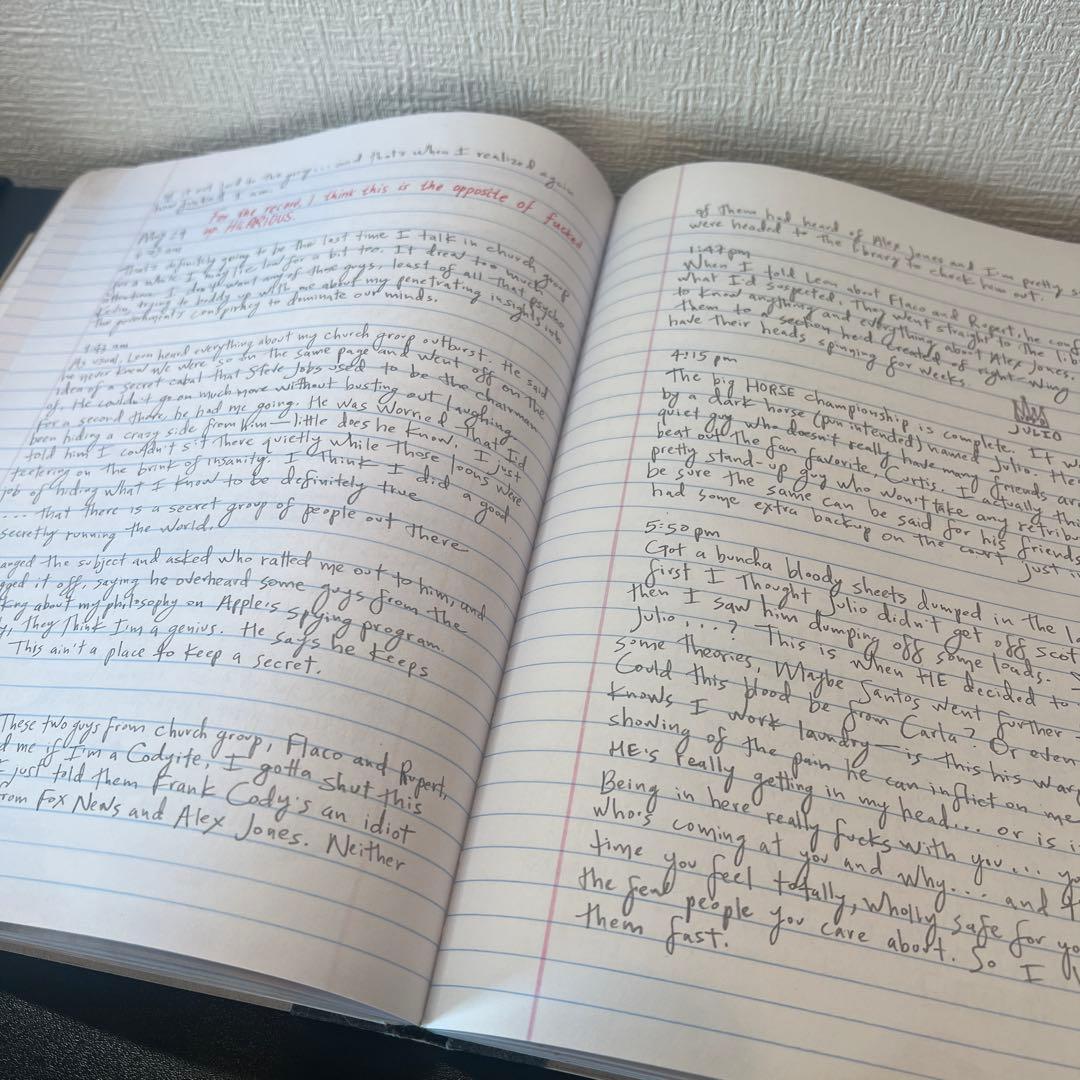 and that's when I realized again
how
For the record, I think this is the opposite of fucked
up HILARIOUS.
May 29
That's definitely going to be the last time I talk in church group
for a while. I may lie low for a bit too. It drew too much
attention. I don't want any of those guys, least of all that psycho
trying to buddy up with me about my penetrating insights into
the government's conspiring to dominate our minds.
As usual, Leon heard everything about my church group outburst. He said
he never knew we were so on the same page and went off on the
idea of a secret cabal that Steve Jobs used to be the chairman
of. He couldn't go on much more without busting out laughing.
For a second there, he had me going. He was worried that I'd
been hiding a crazy side from him—little does he know. I just
told him I couldn't sit there quietly while those loons were
teetering on the brink of insanity. I think I did a good
job of hiding what I know to be definitely true
.... That there is a secret group of people out there
secretly running the world.
anged the subject and asked who ratted me out to him, and
gged it off, saying he overheard some guys from the
king about my philosophy on Apple's spying program.
y, they think I'm a genius. He says he keeps
This ain't a place to keep a secret.
These two guys from church group, Flaco and Rupert,
d me if I'm a Codyite, I gotta shut this
I just told them Frank Cody's an idiot
rom Fox News and Alex Jones. Neither
of them had heard of Alex Jones and I'm pretty s
were headed to the library to check him out.
1:47 pm
When I told Leon about Flaco and Rupert, he conf
what I'd suspected. They went straight to the lib
to know anything and everything about Alex Jones.
them to a section he'd created of right-wing
have their heads spinning for weeks.
4:15 pm
JULIO
The big HORSE championship is complete. It w
by a dark horse (pun intended) named Julio. He's
quiet guy who doesn't really have many friends ar
beat out the fan favorite, Curtis. I actually thi
pretty stand-up guy who won't take any retribu
be sure the same can be said for his friends
had some extra backup on the court just i
5:50 pm
Got a buncha bloody sheets dumped in the la
first I thought Julio didn't get off scot
then I saw him dumping off some loads.
Julio....? This is when HE decided to
some theories, Maybe Santos went further
Could this blood be from Carla? Or even
knows I work laundry—is this his war
showing of the pain he can inflict on me
HE's really getting in my head... or is i
Being in here really fucks with you... yo
who's coming at you and why... and
time you feel totally, wholly safe for yo
the few people you care about. So I
them fast.